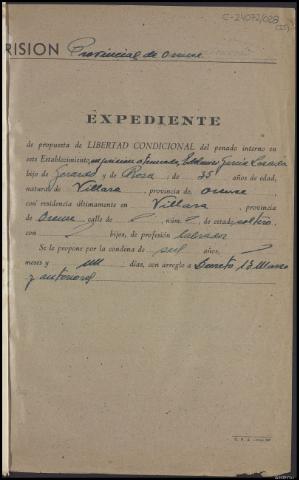 C-24072/028
(25)
RISION Provincial de Orense
EXPEDIENTE
de propuesta de LIBERTAD CONDICIONAL del penado interno en
este Establecimiento, en prision atenuada,
hijo de Gerardo y de Rosa, de 35 años de edad,
natural de Villara, provincia de Orense
con residencia últimamente en Villara, provincia
de Orense calle de, núm., de estado soltero
con hijos, de profesión labrador
Se le propone por la condena de seis años,
meses y un días, con arreglo a Decreto 13 Marzo
y anteriores